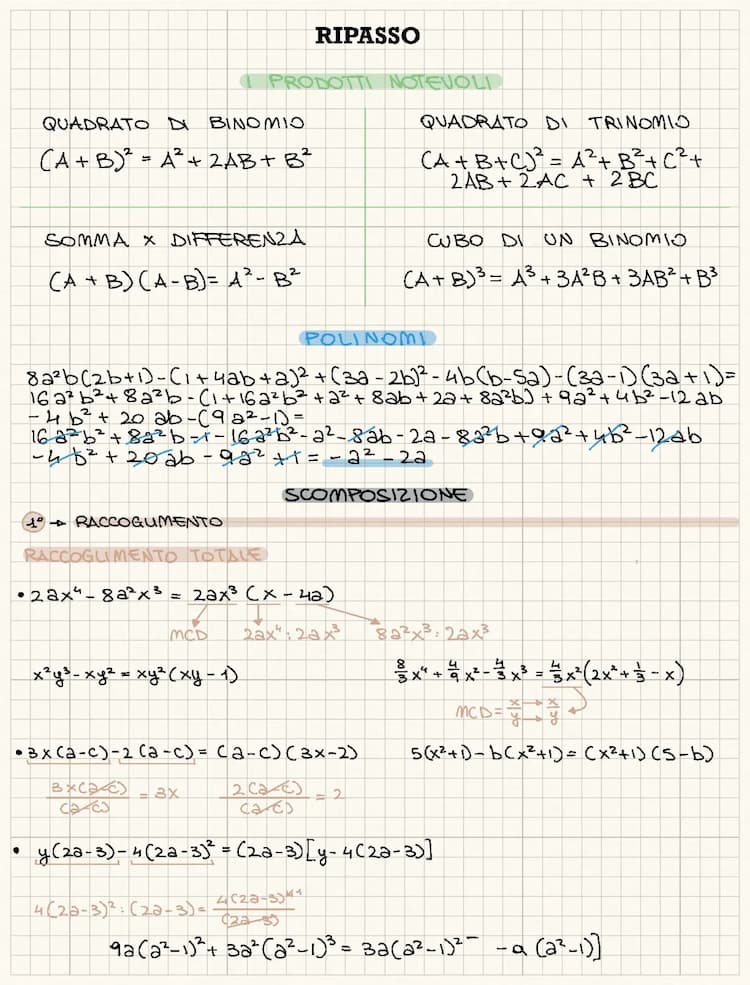 RIPASSO
I PRODOTTI NOTEVOLI
QUADRATO DI BINOMIO
(A + B)² = A² + 2AB + B²
QUADRATO DI TRINOMIO
(A + B + C)² = A² + B² + C² +
2AB + 2AC + 2BC
SOMMA x DIFFERENZA
(A + B)(A - B) = A² - B²
CUBO DI UN BINOMIO
(A + B)³ = A³ + 3A²B + 3AB² + B³
POLINOMI
8a²b(2b+1) - (1 + 4ab + a)² + (3a - 2b)² - 4b(b - 5a) - (3a - 1)(3a + 1) =
16a²b² + 8a²b - (1 + 16a²b² + a² + 8ab + 2a + 8a²b) + 9a² + 4b² - 12ab
- 4b² + 20ab - (9a² - 1) =
16a²b² + 8a²b - 1 - 16a²b² - a² - 8ab - 2a - 8a²b + 9a² + 4b² - 12ab
- 4b² + 20ab - 9a² + 1 = - a² - 2a
SCOMPOSIZIONE
1° → RACCOGLIMENTO
RACCOGLIMENTO TOTALE
• 2ax⁴ - 8a²x³ = 2ax³ (x - 4a)
MCD 2ax⁴ : 2ax³ 8a²x³ : 2ax³
x²y³ - xy² = xy² (xy - 1)
8/3 x⁴ + 4/9 x² - 4/3 x³ = 4/3 x² (2x² + 1/3 - x)
MCD = x/y → x/y
• 3x(a - c) - 2(a - c) = (a - c)(3x - 2)
5(x² + 1) - b(x² + 1) = (x² + 1)(5 - b)
3x(a - c)/(a - c) = 3x 2(a - c)/(a - c) = 2
• y(2a - 3) - 4(2a - 3)² = (2a - 3)[y - 4(2a - 3)]
4(2a - 3)² : (2a - 3) = 4(2a - 3)/(2a - 3)
9a(a² - 1)² + 3a²(a² - 1)³ = 3a(a² - 1)² - - a (a² - 1)]